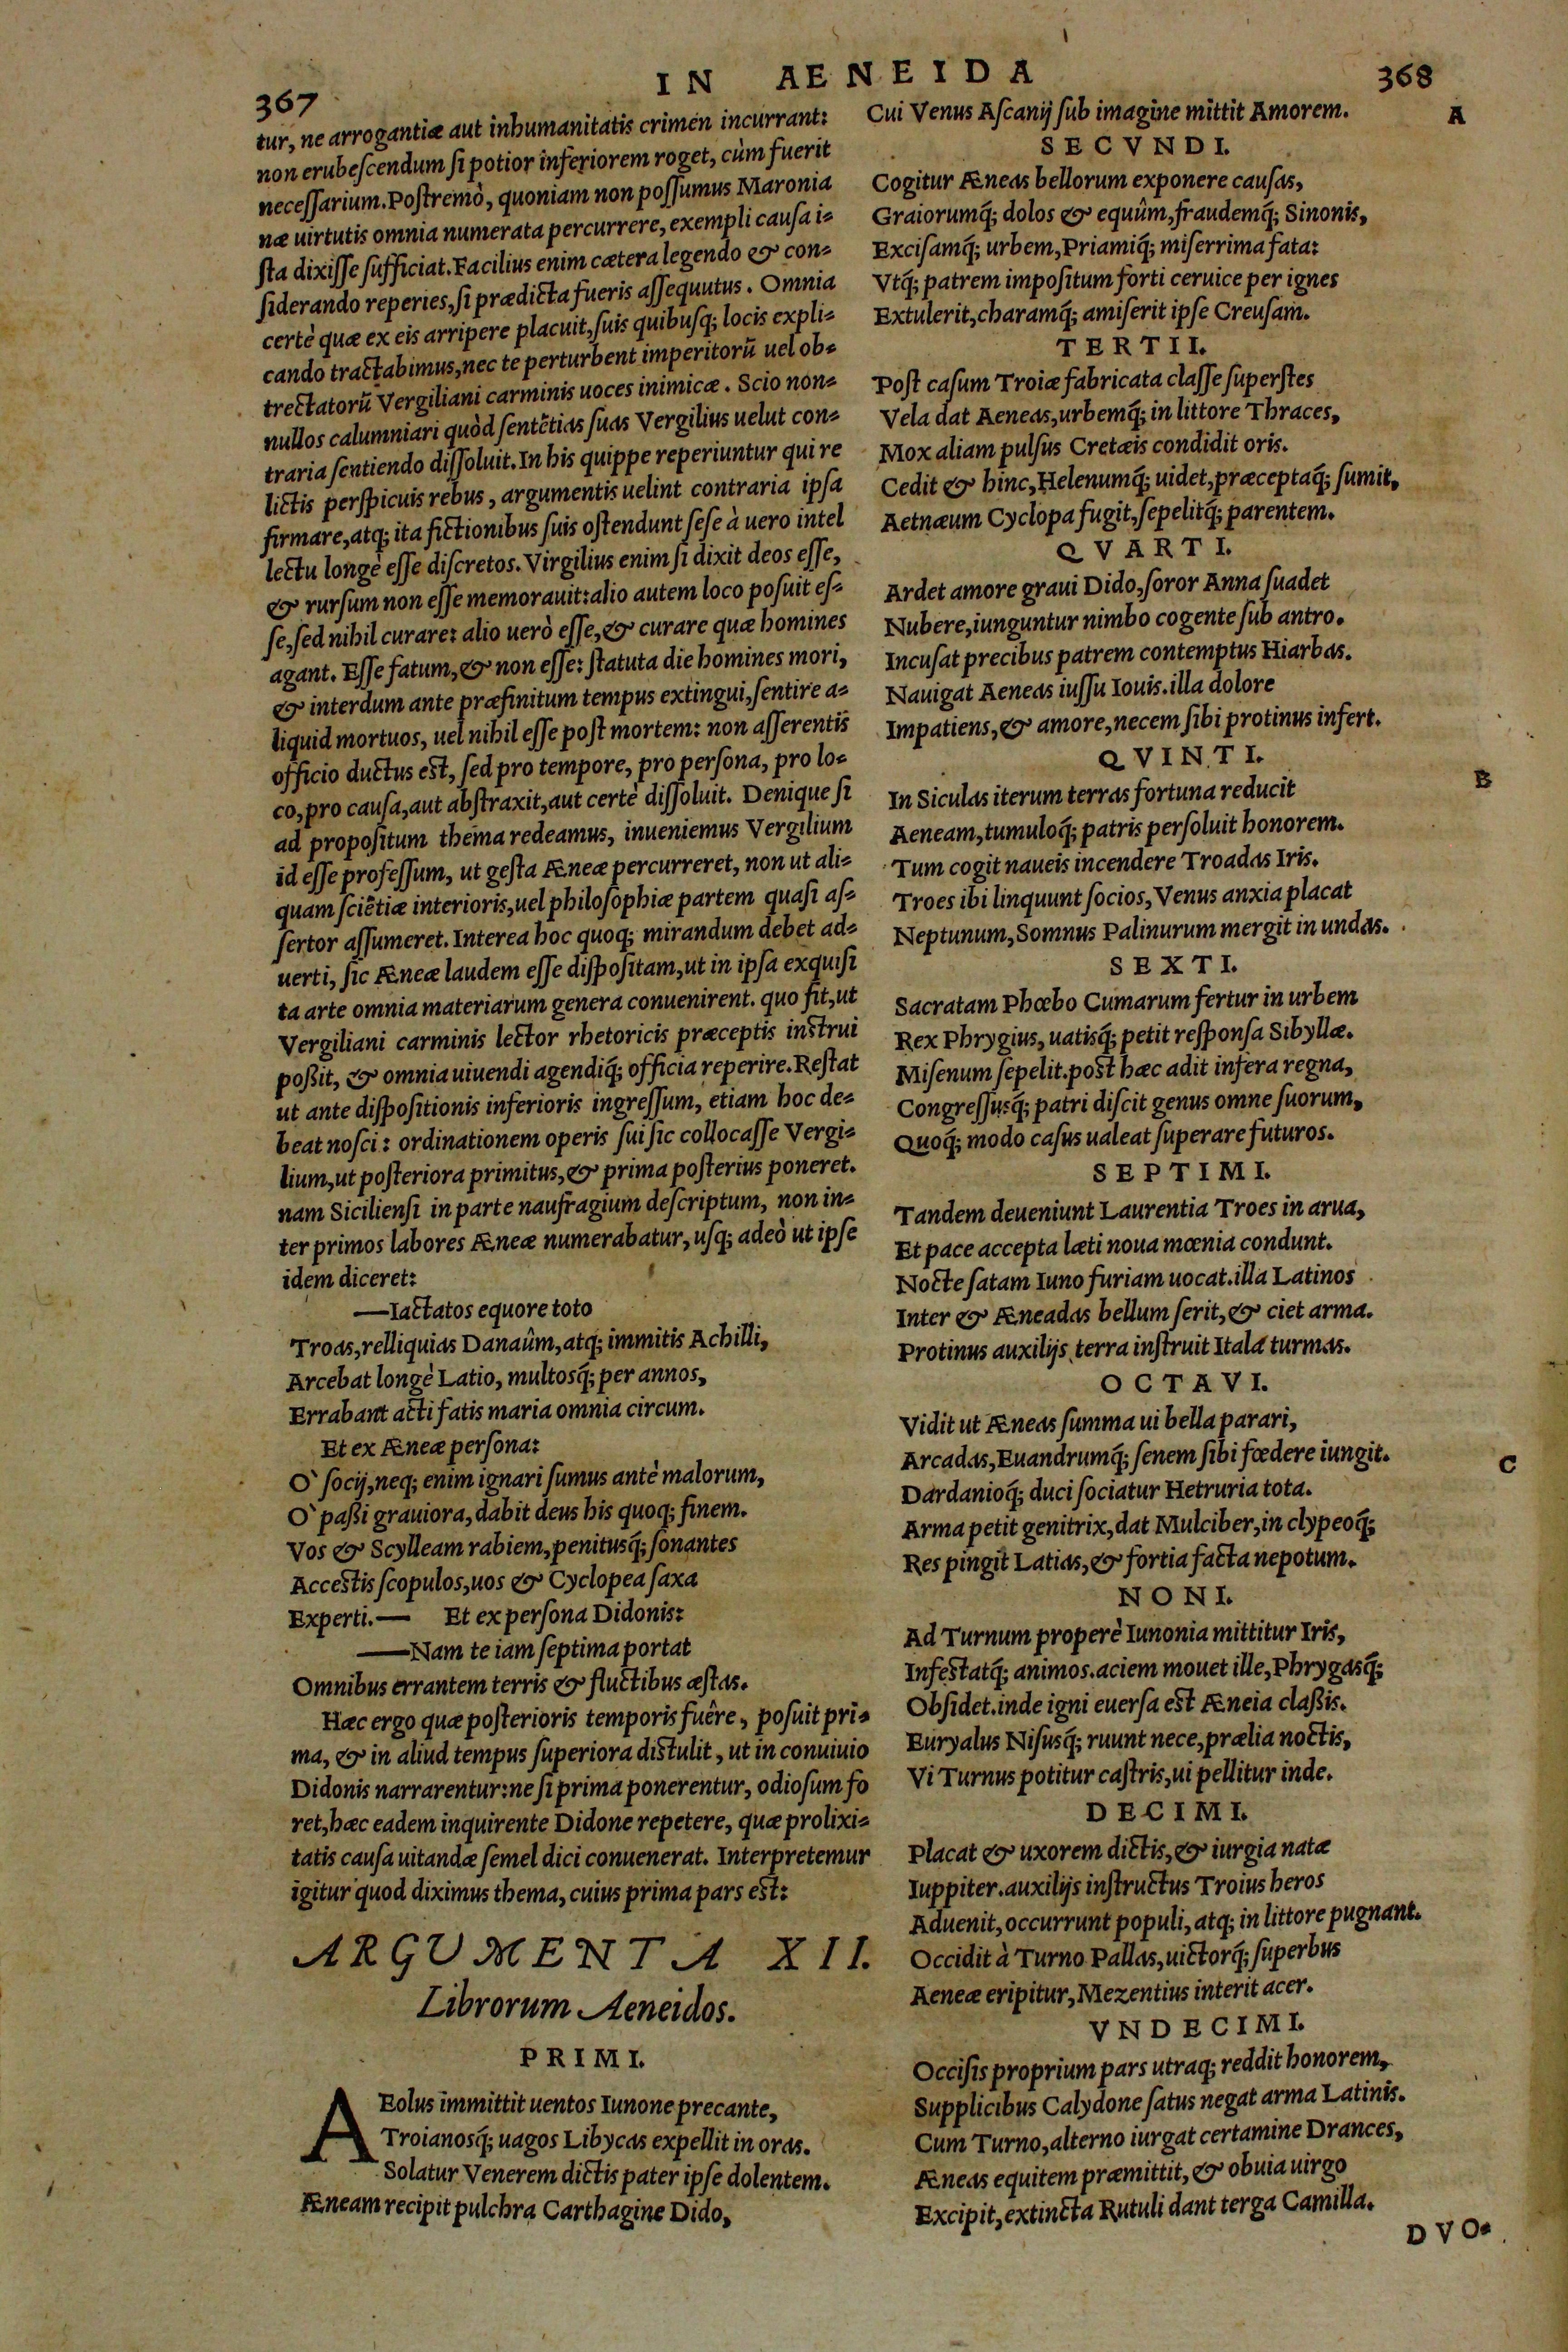 IN AENEIDA
367
tur, ne arrogantiæ aut inhumanitatis crimen incurrant:
non erubeſcendum ſi potior inferiorem roget, cùm fuerit
neceſſarium. Poſtremò, quoniam non poſſumus Maronia
næ uirtutis omnia numerata percurrere, exempli cauſa i=
ſta dixiſſe ſufficiat. Facilius enim cætera legendo & con=
ſiderando reperies, ſi prædicta fueris aſſequutus. Omnia
certè quæ ex eis arripere placuit, ſuis quibuſq; locis expli=
cando tractabimus, nec te perturbent imperitorũ uel ob=
trectatorũ Vergiliani carminis uoces inimicæ. Scio non=
nullos calumniari quòd ſentẽtias ſuas Vergilius uelut con=
traria ſentiendo diſſoluit. In his quippe reperiuntur qui re
lictis perſpicuis rebus, argumentis uelint contraria ipſa
firmare, atq; ita fictionibus ſuis oſtendunt ſeſe à uero intel
lectu longè eſſe diſcretos. Virgilius enim ſi dixit deos eſſe,
& rurſum non eſſe memorauit: alio autem loco poſuit eſ=
ſe, ſed nihil curare: alio uerò eſſe, & curare quæ homines
agant. Eſſe fatum, & non eſſe: ſtatuta die homines mori,
& interdum ante præfinitum tempus extingui, ſentire a=
liquid mortuos, uel nihil eſſe poſt mortem: non aſſerentis
officio ductus eſt, ſed pro tempore, pro perſona, pro lo=
co, pro cauſa, aut abſtraxit, aut certè diſſoluit. Denique ſi
ad propoſitum thema redeamus, inueniemus Vergilium
id eſſe profeſſum, ut geſta Æneæ percurreret, non ut ali=
quam ſciẽtiæ interioris, uel philoſophiæ partem quaſi aſ=
ſertor aſſumeret. Interea hoc quoq; mirandum debet ad=
uerti, ſic Æneæ laudem eſſe diſpoſitam, ut in ipſa exquiſi
ta arte omnia materiarum genera conuenirent. quo fit, ut
Vergiliani carminis lector rhetoricis præceptis inſtrui
poßit, & omnia uiuendi agendiq́; officia reperire. Reſtat
ut ante diſpoſitionis inferioris ingreſſum, etiam hoc de=
beat noſci: ordinationem operis ſui ſic collocaſſe Vergi=
lium, ut poſteriora primitus, & prima poſterius poneret.
nam Sicilienſi in parte naufragium deſcriptum, non in=
ter primos labores Æneæ numerabatur, uſq; adeò ut ipſe
idem diceret:
—Iactatos equore toto
Troas, relliquias Danaûm, atq; immitis Achilli,
Arcebat longè Latio, multosq́; per annos,
Errabant acti fatis maria omnia circum.
Et ex Æneæ perſona:
O` ſocij, neq; enim ignari ſumus antè malorum,
O` paßi grauiora, dabit deus his quoq; finem.
Vos & Scylleam rabiem, penitusq́; ſonantes
Acceſtis ſcopulos, uos & Cyclopea ſaxa
Experti.— Et ex perſona Didonis:
—Nam te iam ſeptima portat
Omnibus errantem terris & fluctibus æſtas.
Hæc ergo quæ poſterioris temporis fuêre, poſuit pri=
ma, & in aliud tempus ſuperiora diſtulit, ut in conuiuio
Didonis narrarentur: ne ſi prima ponerentur, odioſum fo
ret, hæc eadem inquirente Didone repetere, quæ prolixi=
tatis cauſa uitandæ ſemel dici conuenerat. Interpretemur
igitur quod diximus thema, cuius prima pars eſt:
ARGUMENTA XII.
Librorum Aeneidos.
PRIMI.
AEolus immittit uentos Iunone precante,
Troianosq́; uagos Libycas expellit in oras.
Solatur Venerem dictis pater ipſe dolentem.
Æneam recipit pulchra Carthagine Dido,
368
Cui Venus Aſcanij ſub imagine mittit Amorem.
A
SECVNDI.
Cogitur Æneas bellorum exponere cauſas,
Graiorumq́; dolos & equûm, fraudemq́; Sinonis,
Exciſamq́; urbem, Priamiq́; miſerrima fata:
Vtq́; patrem impoſitum forti ceruice per ignes
Extulerit, charamq́; amiſerit ipſe Creuſam.
TERTII.
Poſt caſum Troiæ fabricata claſſe ſuperſtes
Vela dat Aeneas, urbemq́; in littore Thraces,
Mox aliam pulſus Cretæis condidit oris.
Cedit & hinc, Helenumq́; uidet, præceptaq́; ſumit,
Aetnæum Cyclopa fugit, ſepelitq́; parentem.
QVARTI.
Ardet amore graui Dido, ſoror Anna ſuadet
Nubere, iunguntur nimbo cogente ſub antro.
Incuſat precibus patrem contemptus Hiarbas.
Nauigat Aeneas iuſſu Iouis. illa dolore
Impatiens, & amore, necem ſibi protinus infert.
QVINTI.
B
In Siculas iterum terras fortuna reducit
Aeneam, tumuloq́; patris perſoluit honorem.
Tum cogit naueis incendere Troadas Iris.
Troes ibi linquunt ſocios, Venus anxia placat
Neptunum, Somnus Palinurum mergit in undas.
SEXTI.
Sacratam Phœbo Cumarum fertur in urbem
Rex Phrygius, uatisq́; petit reſponſa Sibyllæ.
Miſenum ſepelit. poſt hæc adit infera regna,
Congreſſusq́; patri diſcit genus omne ſuorum,
Quoq́; modo caſus ualeat ſuperare futuros.
SEPTIMI.
Tandem deueniunt Laurentia Troes in arua,
Et pace accepta læti noua mœnia condunt.
Nocte ſatam Iuno furiam uocat. illa Latinos
Inter & Æneadas bellum ſerit, & ciet arma.
Protinus auxilijs terra inſtruit Itala turmas.
OCTAVI.
Vidit ut Æneas ſumma ui bella parari,
Arcadas, Euandrumq́; ſenem ſibi fœdere iungit.
C
Dardanioq́; duci ſociatur Hetruria tota.
Arma petit genitrix, dat Mulciber, in clypeoq́;
Res pingit Latias, & fortia facta nepotum.
NONI.
Ad Turnum properè Iunonia mittitur Iris,
Infeſtatq́; animos. aciem mouet ille, Phrygasq́;
Obſidet. inde igni euerſa eſt Æneia claßis.
Euryalus Niſusq́; ruunt nece, prælia noctis,
Vi Turnus potitur caſtris, ui pellitur inde.
DECIMI.
Placat & uxorem dictis, & iurgia natæ
Iuppiter. auxilijs inſtructus Troius heros
Aduenit, occurrunt populi, atq; in littore pugnant.
Occidit à Turno Pallas, uictorq́; ſuperbus
Aeneæ eripitur, Mezentius interit acer.
VNDECIMI.
Occiſis proprium pars utraq; reddit honorem,
Supplicibus Calydone ſatus negat arma Latinis.
Cum Turno, alterno iurgat certamine Drances,
Æneas equitem præmittit, & obuia uirgo
Excipit, extincta Rutuli dant terga Camilla.
DVO=